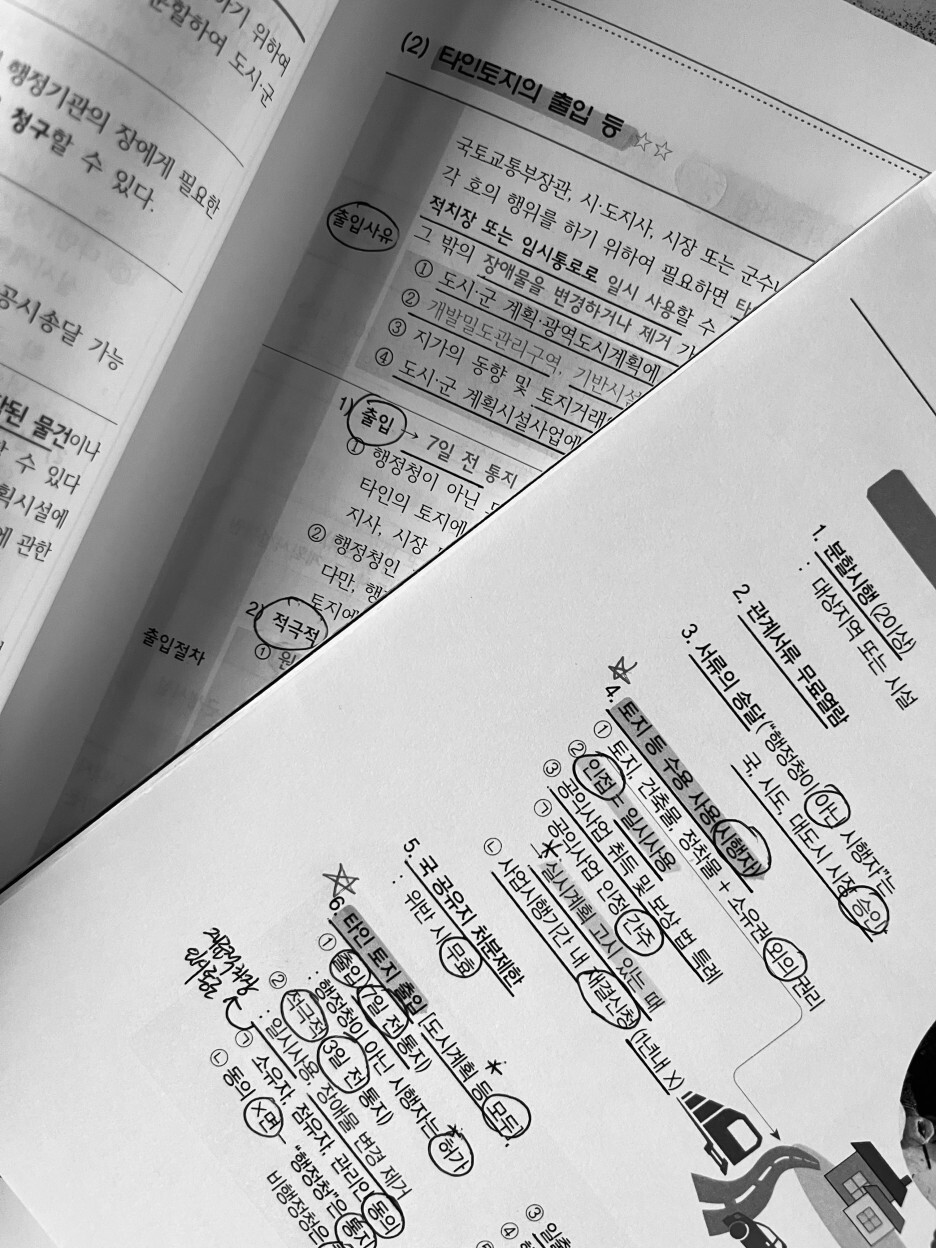 하기 위하여
분할하여 도시·군
행정기관의 장에게 필요한
청구할 수 있다.
공시송달 가능
된 물건이나
수 있다
획시설에
에 관한
(2) 타인토지의 출입 등 ☆☆
국토교통부장관, 시·도지사, 시장 또는 군수
각 호의 행위를 하기 위하여 필요하면 타
출입사유
적치장 또는 임시통로로 일시 사용할 수
그 밖의 장애물을 변경하거나 제거
① 도시·군 계획·광역도시계획에
② 개발밀도관리구역, 기반시설
③ 지가의 동향 및 토지거래
④ 도시·군 계획시설사업에
1) 출입 → 7일 전 통지
① 행정청이 아닌
타인의 토지에
지사, 시장
② 행정청인
다만, 행
토지에
출입절차
2) 적극적
① 원
1. 분할시행 (2이상)
: 대상지역 또는 시설
2. 관계서류 무료열람
3. 서류의 송달 ("행정청이 아닌 시행자"는
국, 시도, 대도시 시장 승인
4. 토지 등 수용 사용(시행자)
① 토지, 건축물, 정착물 + 소유권 외의 권리
② 인접 = 일시사용
③ 공익사업 취득 및 보상 법 특례
㉠ 공익사업 인정 간주
* 실시계획 고시 있는 때
㉡ 사업시행기간 내 재결신청 (1년내 X)
5. 국 공유지 처분제한
: 위반 시 무효
6. 타인 토지 출입 [도시계획 등 모두]
① 출입 (7일 전 통지)
: 행정청이 아닌 시행자는 허가
② 적극적 (3일 전 통지)
: 일시사용, 장애물 변경 제거
㉠ 소유자, 점유자, 관리인 동의
㉡ 동의 X면 - "행정청"은 통지
비행정청은
③ 일출
④